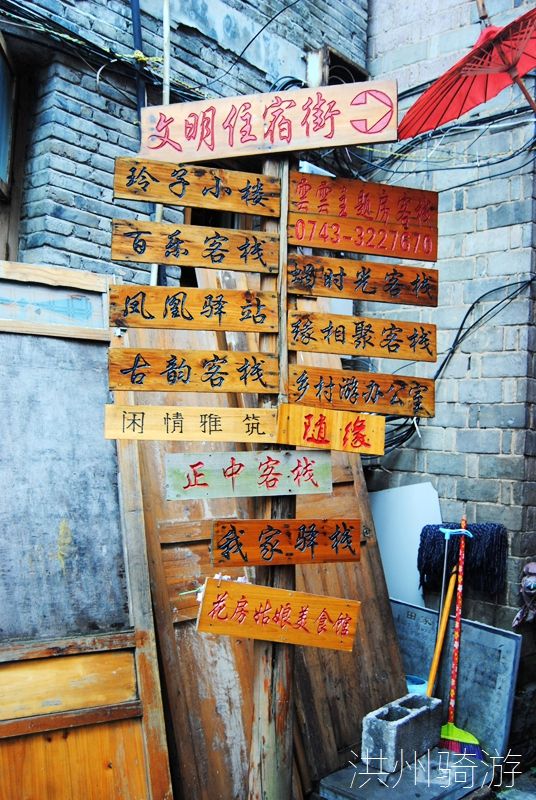 文明住宿街
玲子小楼
雲雲主题房客栈
0743-3227670
百乐客栈
蜗时光客栈
凤凰驿站
缘相聚客栈
古韵客栈
乡村游办公室
闲情雅筑
随缘
正中客栈
我家驿栈
花房姑娘美食馆
洪州骑游